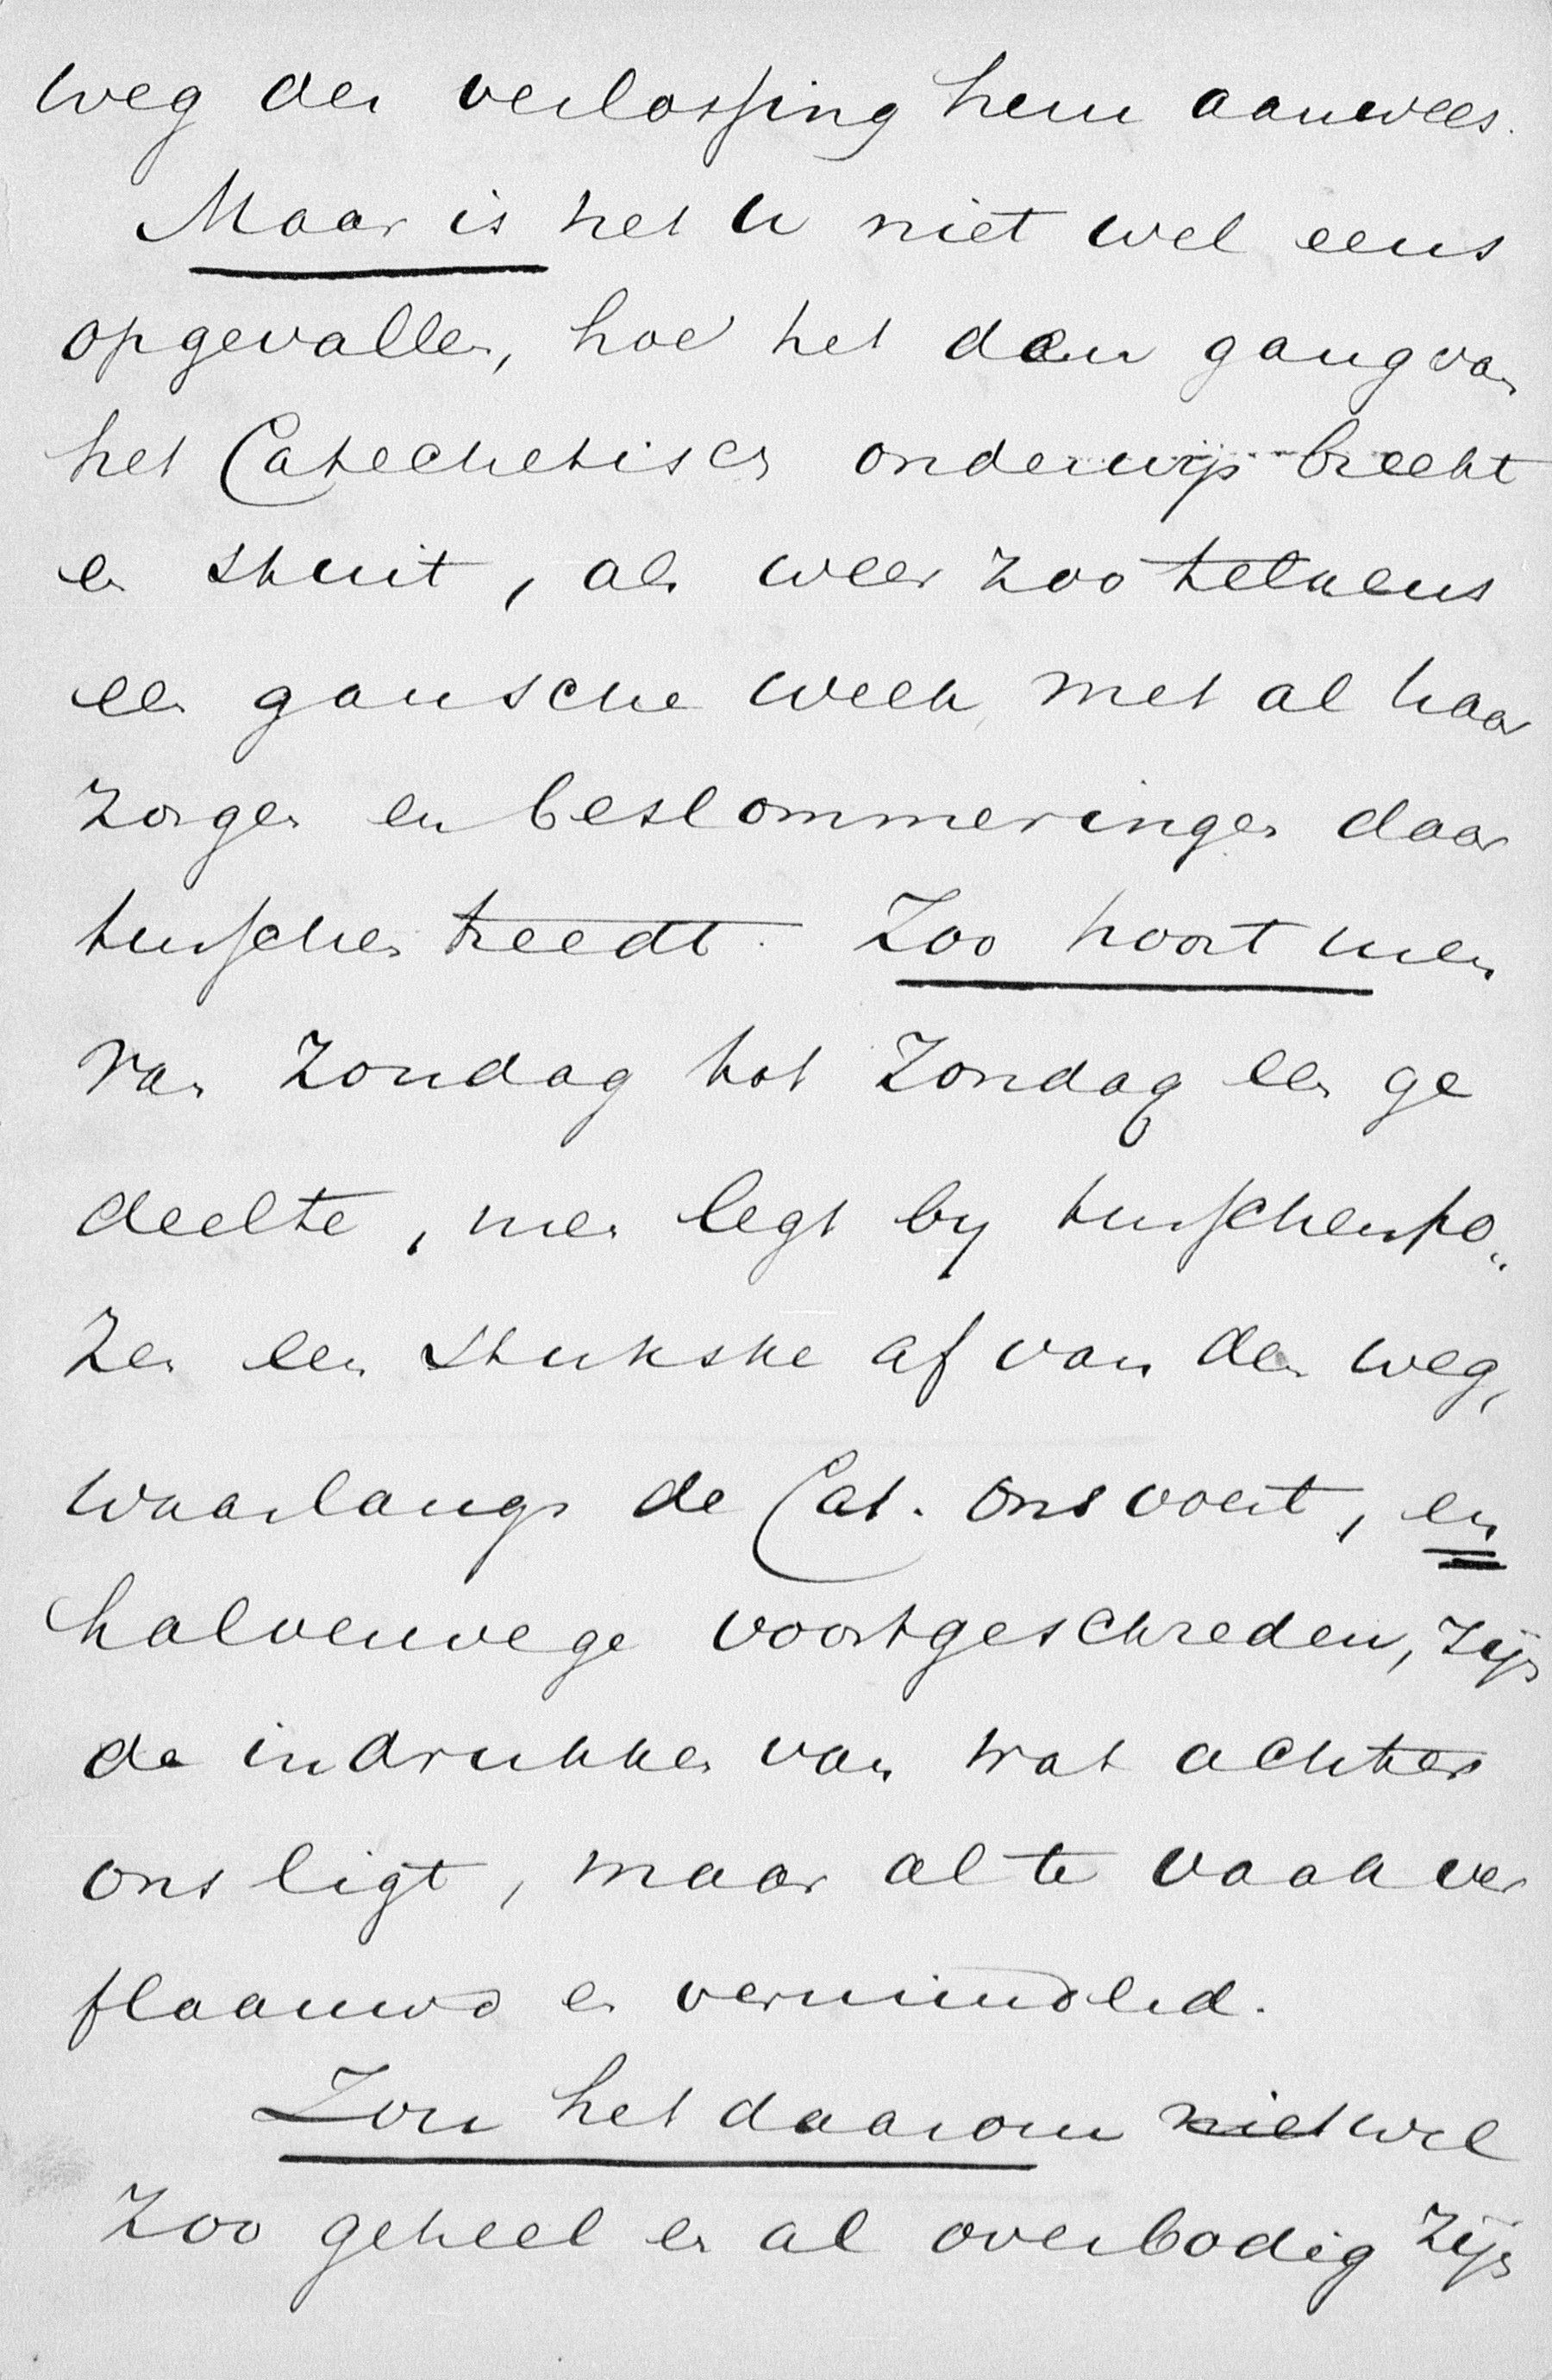 weg der verlossing hem aanwees.
Maar is het u niet wel eens
opgevallen, hoe het den gang van
het Catechetisch onderwijs breekt
en stuit, als weer zoo telkens
een gansche week met al haar
zorgen en beslommeringen daar
tusschen treedt. Zoo hoort men
van Zondag tot Zondag een ge
deelte, men legt by tusschenpo„
zen een stukske af van den weg,
waarlangs de Cat. ons voert, en
halverwege voortgeschreden, zijn
de indrukken van wat achter
ons ligt, maar al te vaak ver
flaauwd en verminderd.
Zou het daarom niet wel
zoo geheel en al overbodig zijn